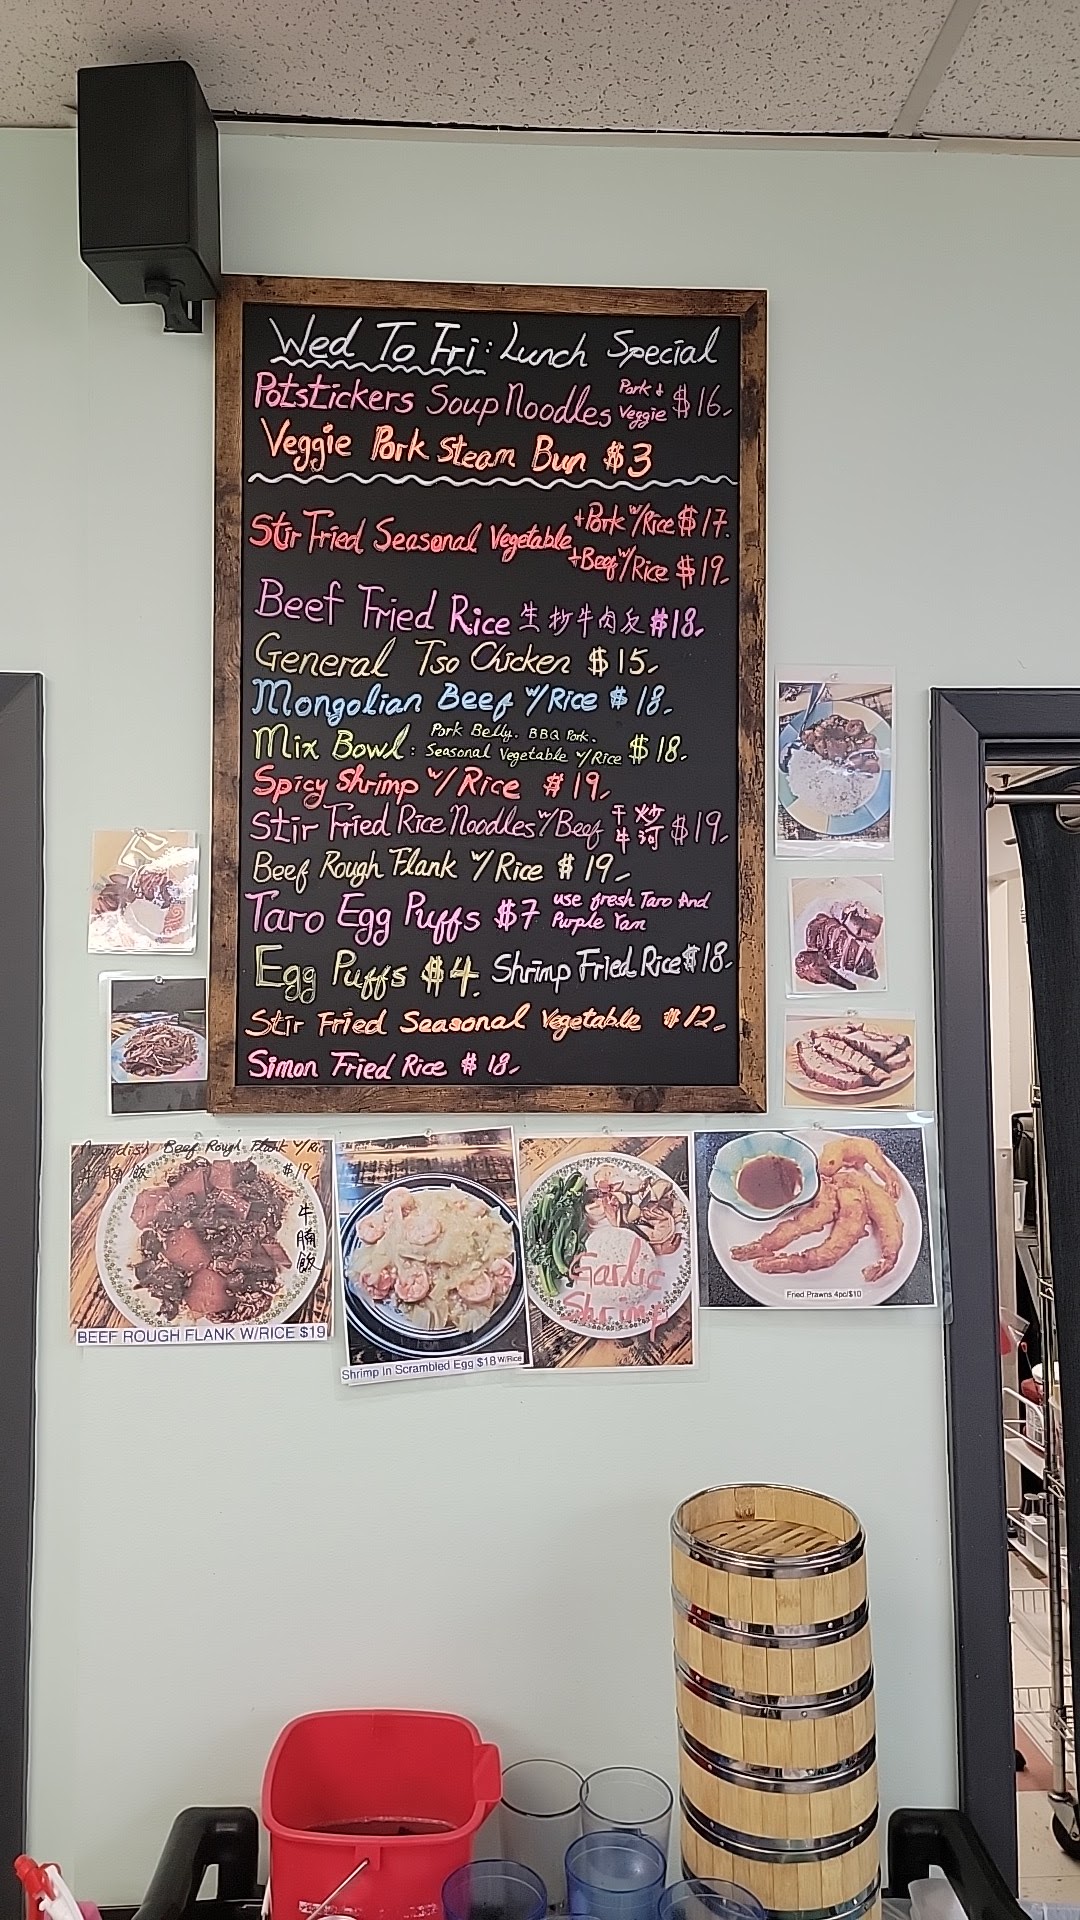 Wed To Fri: Lunch Special
Potstickers Soup Noodles Pork & Veggie $16.
Veggie Pork Steam Bun $3
Stir Fried Seasonal Vegetable +Pork w/Rice $17.
+Beef w/Rice $19.
Beef Fried Rice 生抄牛肉反 $18.
General Tso Chicken $15.
Mongolian Beef w/Rice $18.
Mix Bowl: Pork Belly. BBQ Pork.
Seasonal Vegetable w/Rice $18.
Spicy Shrimp w/Rice $19.
Stir Fried Rice Noodles w/Beef 干炒牛河 $19.
Beef Rough Flank w/Rice $19.
Taro Egg Puffs $7 use fresh Taro And
Purple Yam
Egg Puffs $4. Shrimp Fried Rice $18.
Stir Fried Seasonal Vegetable $12.
Simon Fried Rice $18.
Beef Rough Flank w/Ric
$19
牛腩飯
BEEF ROUGH FLANK W/RICE $19
Shrimp In Scrambled Egg $18 W/Rice
Garlic
Shrimp
Fried Prawns 4pc/$10